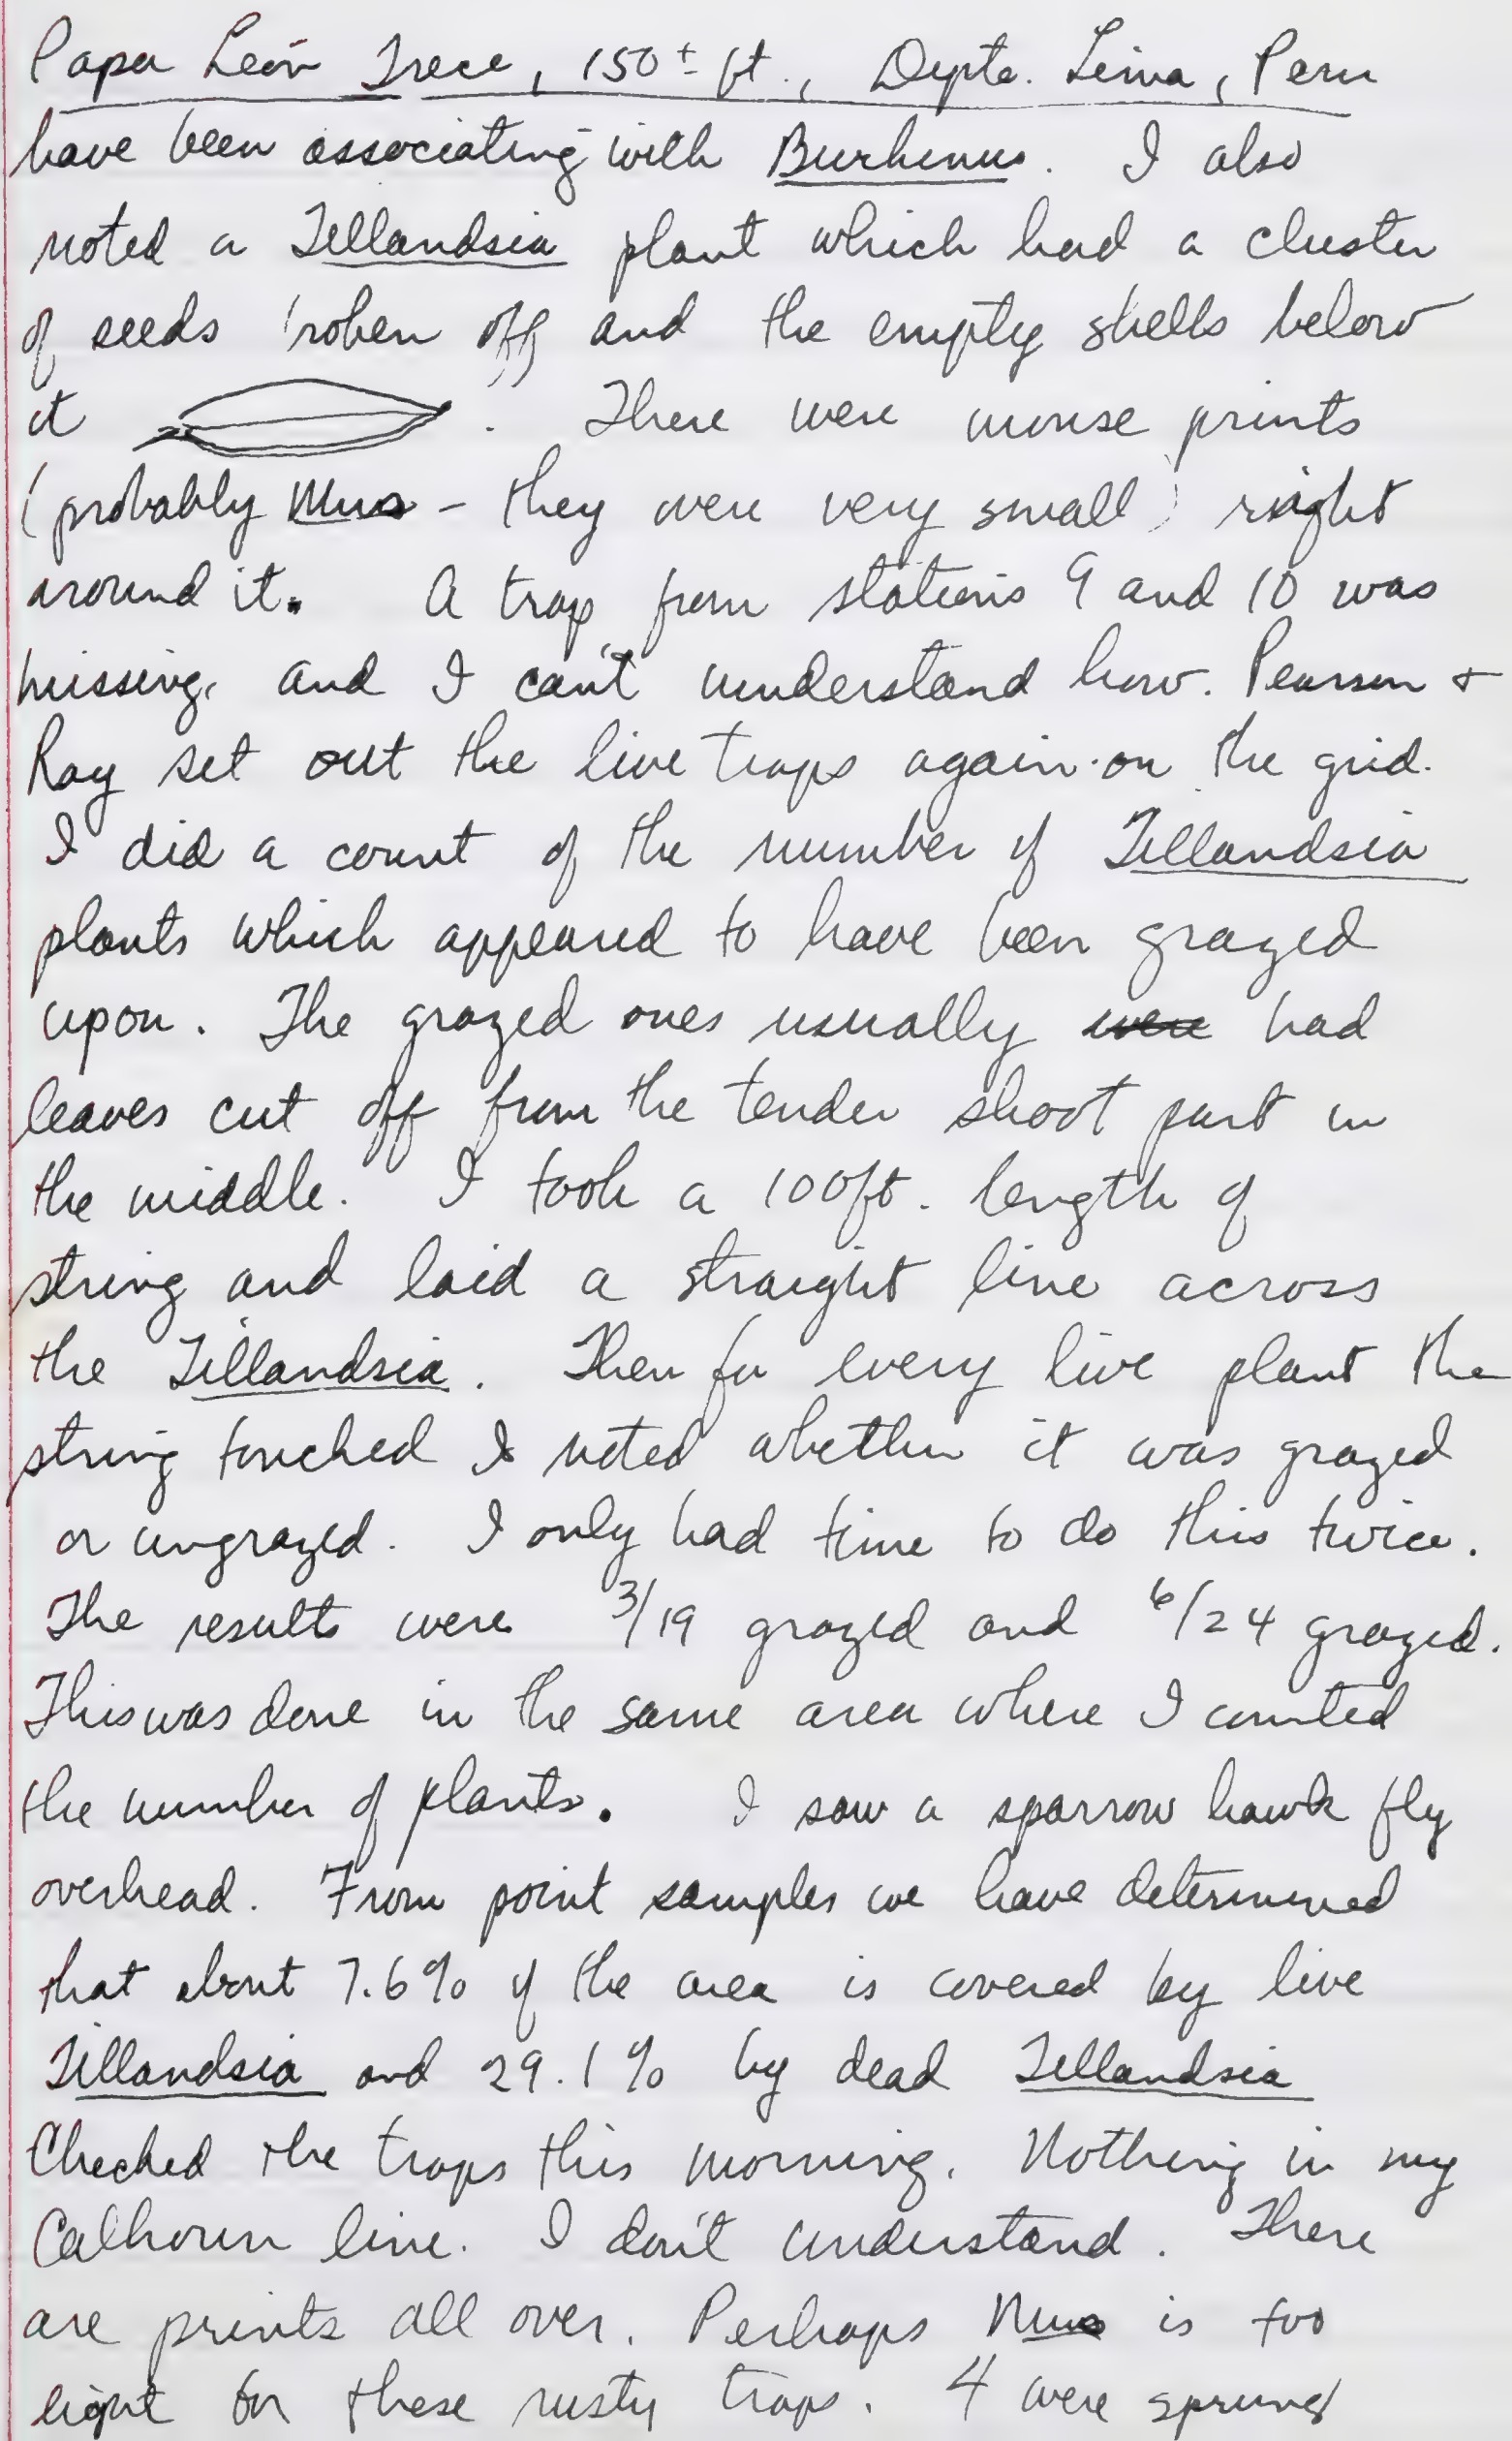 Papa León Trece, 150± ft., Depto. Lima, Peru
have been associating with Burhinus. I also
noted a Tillandsia plant which had a cluster
of seeds roken off and the empty shells below
it . There were mouse prints
(probably Mus - they were very small) right
around it. A trap from stations 9 and 10 was
missing, and I can't understand how. Pearson +
Ray set out the live traps again on the grid.
I did a count of the number of Tillandsia
plants which appeared to have been grazed
upon. The grazed ones usually were had
leaves cut off from the tender shoot part in
the middle. I took a 100ft. length of
string and laid a straight line across
the Tillandsia. Then for every live plant the
string touched I noted whether it was grazed
or ungrazed. I only had time to do this twice.
The results were 3/19 grazed and 6/24 grazed.
This was done in the same area where I counted
the number of plants. I saw a sparrow hawk fly
overhead. From point samples we have determined
that about 7.6% of the area is covered by live
Tillandsia and 29.1% by dead Tillandsia
Checked the traps this morning. Nothing in my
Calhoun line. I don't understand. There
are prints all over. Perhaps Mus is too
light for these rusty traps. 4 were sprung